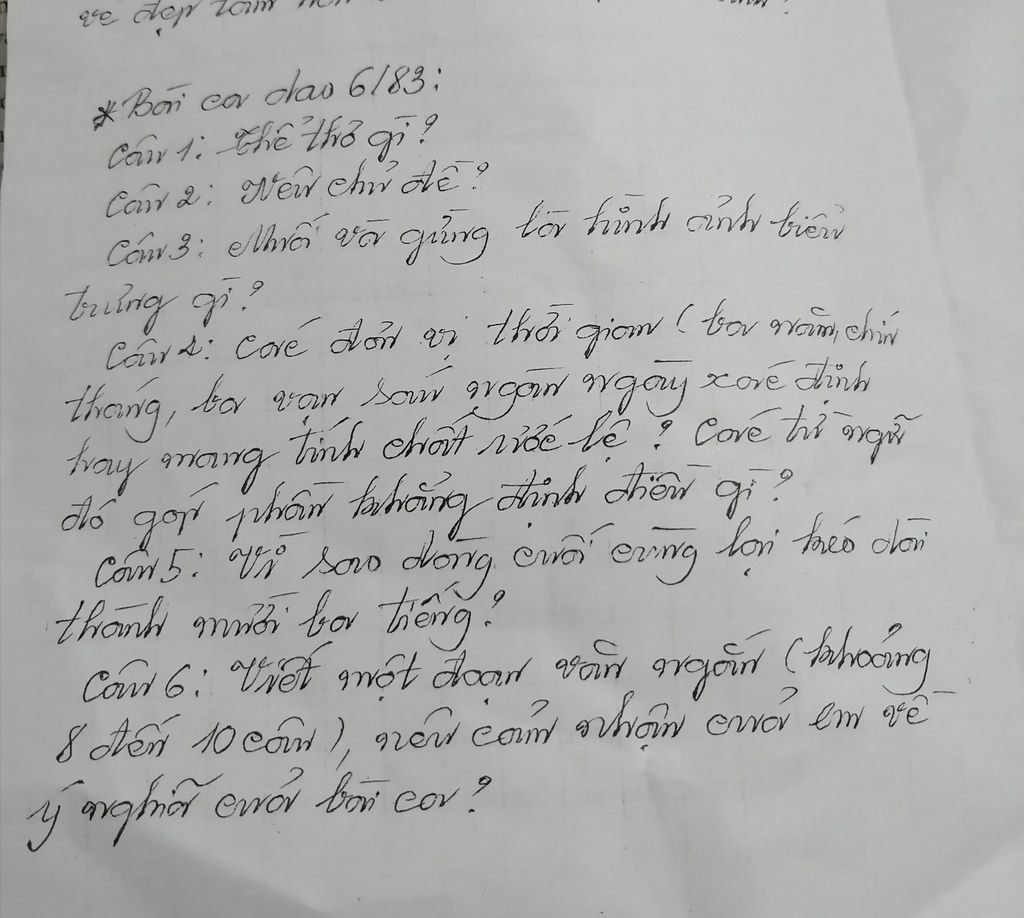 vẻ đẹp tâm
* Bài ca dao 6/83:
Câu 1: Thể thơ gì?
Câu 2: Nêu chủ đề?
Câu 3: Muối và gừng là hình ảnh biểu
trưng gì?
Câu 4: Các đơn vị thời gian (ba năm, chín
tháng, ba vạn sáu ngàn ngày xác định
hay mang tính chất ước lệ? Các từ ngữ
đó góp phần khẳng định điều gì?
Câu 5: Vì sao dòng cuối cùng lại kéo dài
thành mười ba tiếng?
Câu 6: Viết một đoạn văn ngắn (khoảng
8 đến 10 câu), nêu cảm nhận của em về
ý nghĩa của bài ca?